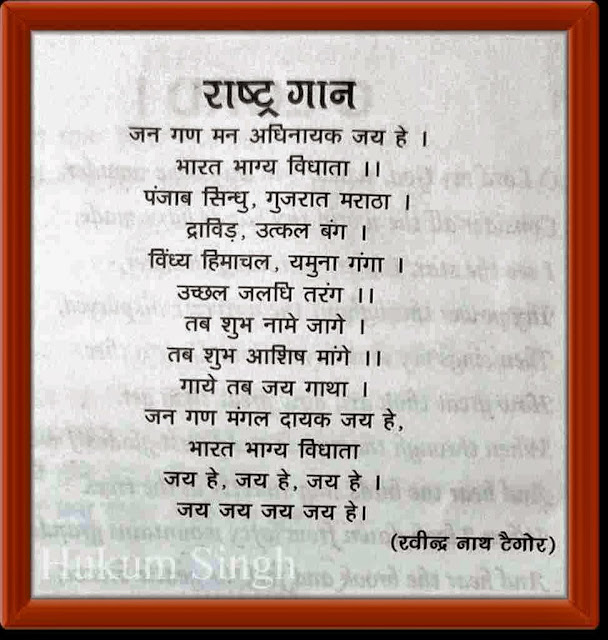 राष्ट्र गान
जन गण मन अधिनायक जय हे ।
भारत भाग्य विधाता ।।
पंजाब सिन्धु, गुजरात मराठा ।
द्राविड़, उत्कल बंग ।
विंध्य हिमाचल, यमुना गंगा ।
उच्छल जलधि तरंग ।।
तब शुभ नामे जागे ।
तब शुभ आशिष मांगे ।।
गाये तब जय गाथा ।
जन गण मंगल दायक जय हे,
भारत भाग्य विधाता
जय हे, जय हे, जय हे ।
जय जय जय जय हे।
(रवीन्द्र नाथ टैगोर)
Hukum Singh